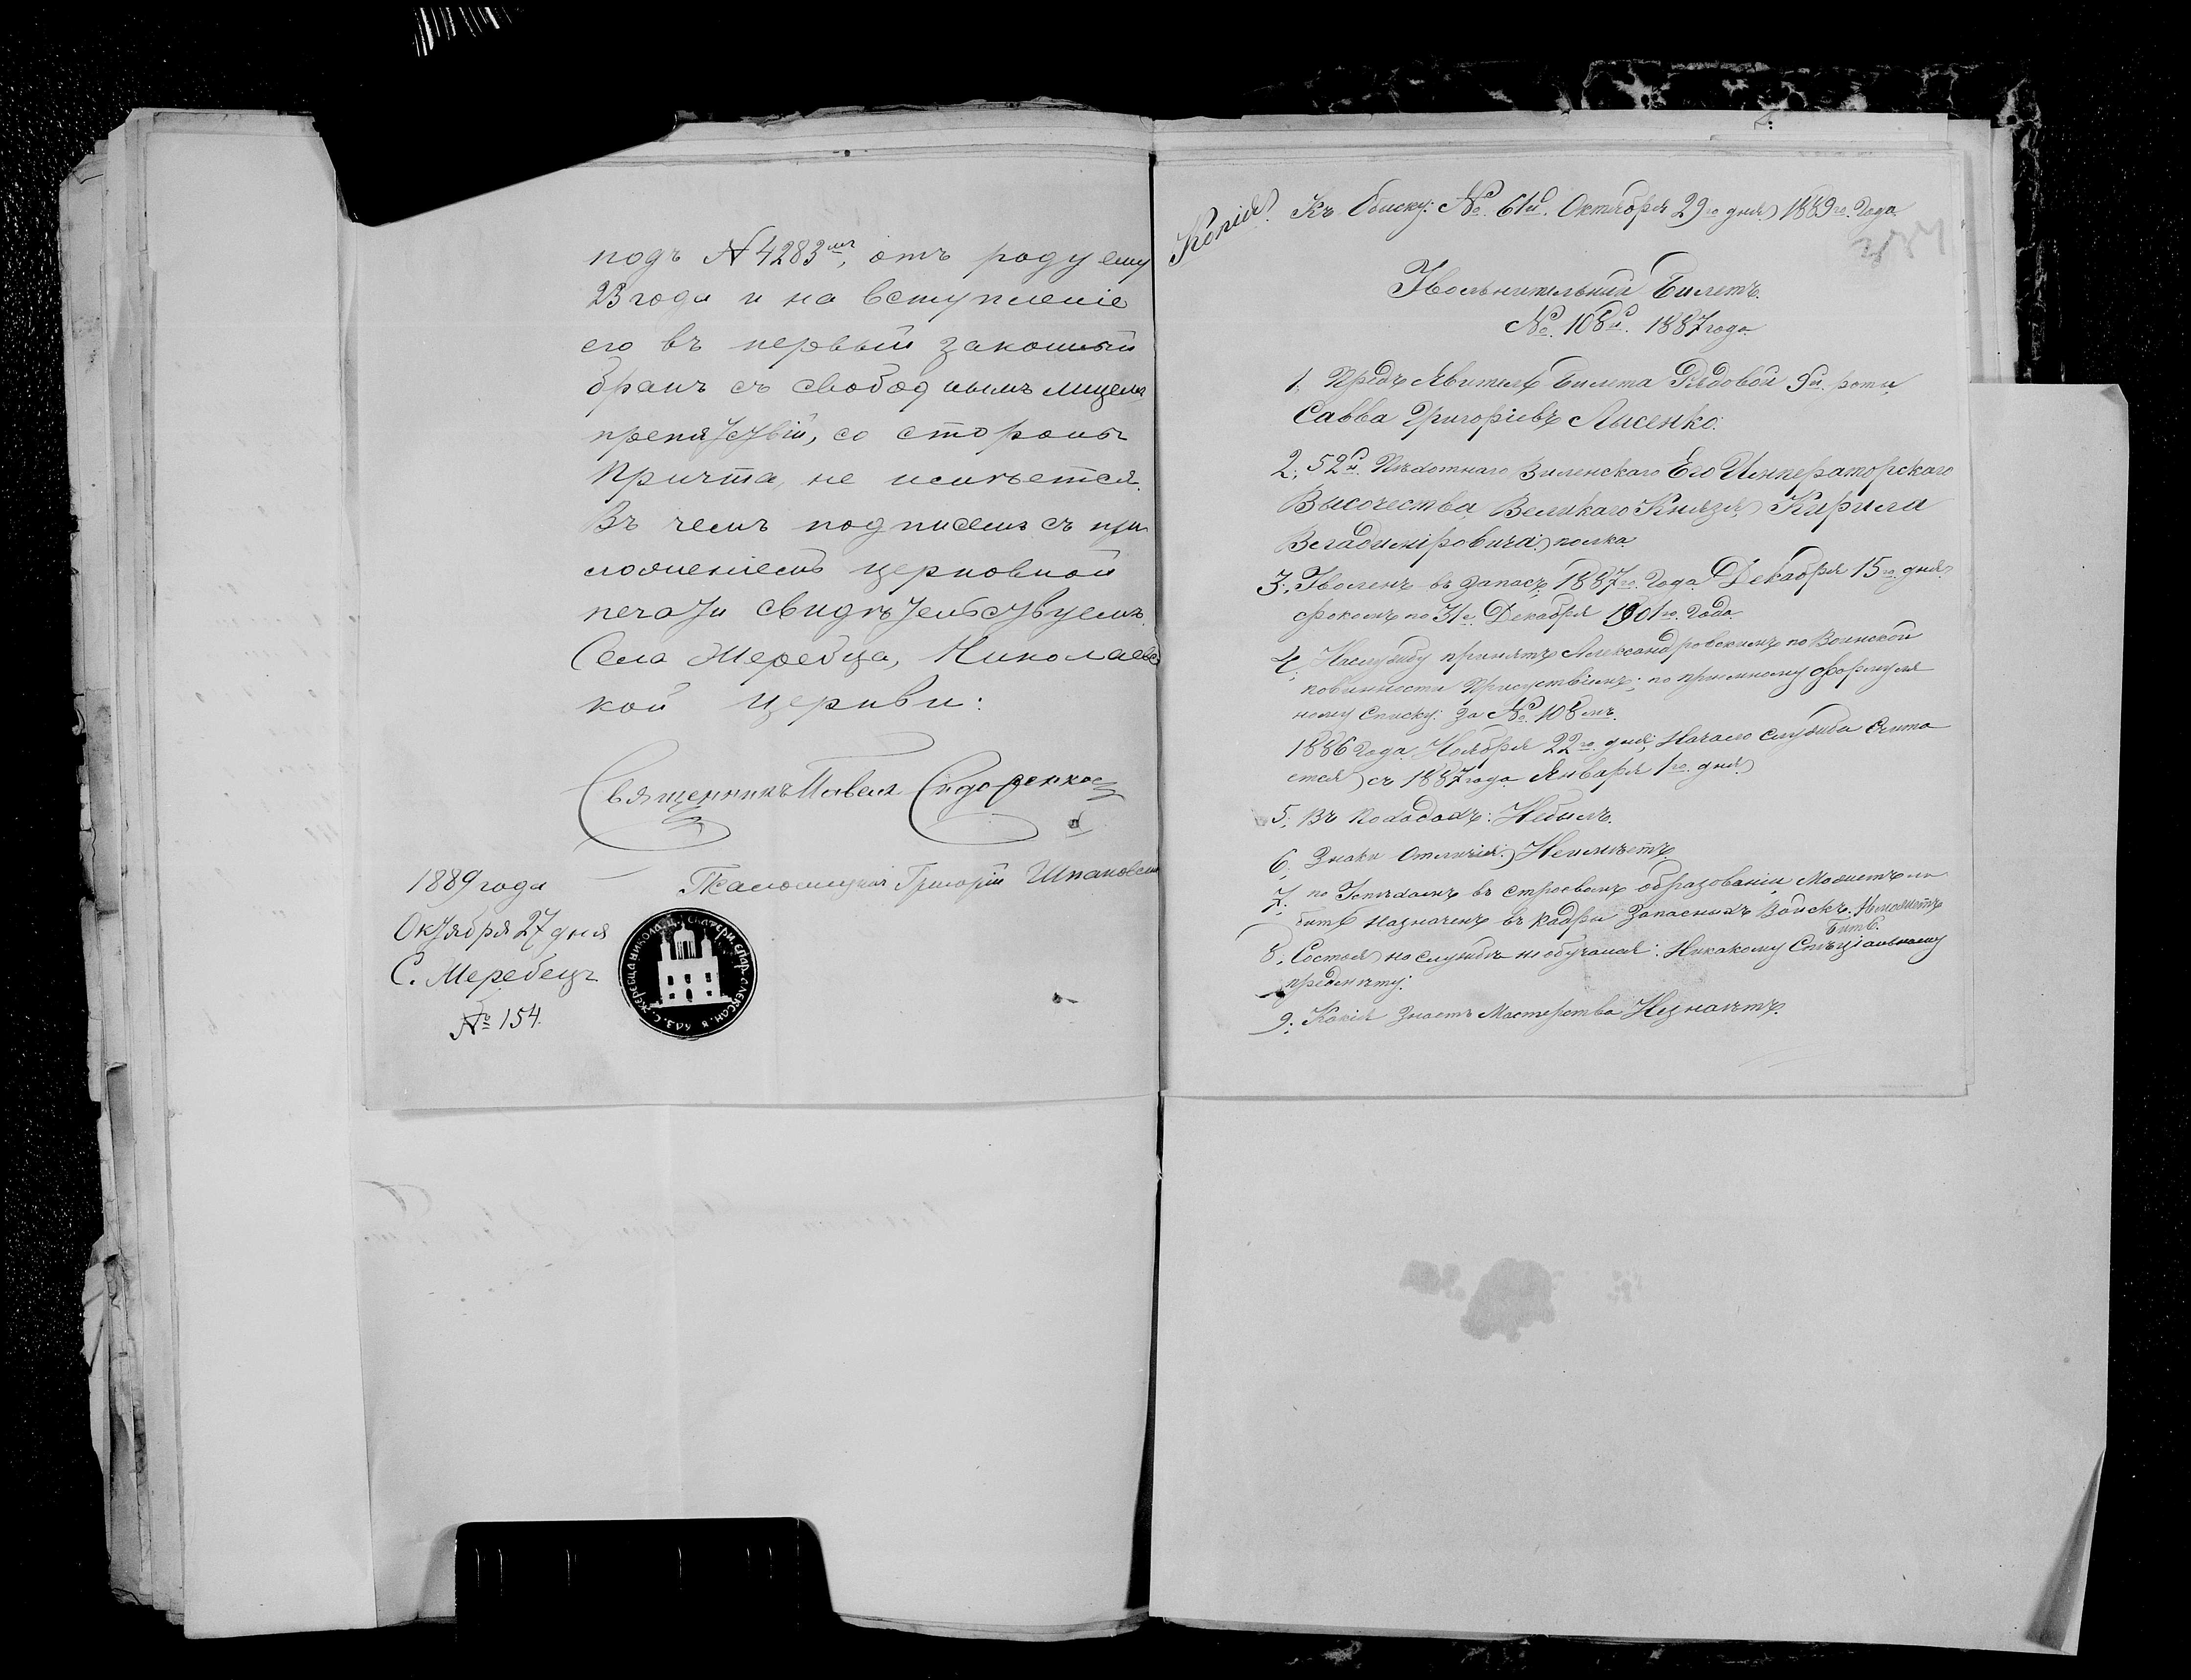 подъ № 4283мъ, отъ роду ему
23 года и на вступленіе
его въ первый законный
бракъ съ свободнымъ лицемъ
препятствій, со стороны
Причта, не имѣется.
Въ чемъ подписемъ съ при
ложеніемъ церковной
печати свидѣтельствуемъ.
Села Жеребца, Николаевс
кой церкви:
Священникъ Павелъ Сидоренко
Псаломщикъ Григорій Шпаковскій
1889 года
Октября 27 дня
С. Жеребецъ
№ 154.
Копія.
Къ Обыску: № 61й. Октября 29го дня 1889го Года.
Увольнительный Билетъ.
№ 108й. 1887 года
1, Предъявитель билета Рядовой 9й роты,
Савва Григоріевъ Лысенко.
2; 52й. Пѣхотнаго Виленскаго Его Императорскаго
Высочества, Великаго Князя, Кирила
Владиміровича, полка.
3; Уволенъ въ запасъ, 1887го Года Декабря 15го дня.
срокомъ по 31е Декабря 1901го Года.
4, Наслужбу принятъ Александровскимъ по Воинской
повинности Присутствіемъ; по пріемному формуля
ному списку: за № 108мъ.
1886 года Ноября 22го дня; Начало службы Счита
ется съ 1887 года Января 1го дня.
5, Въ Походахъ: Небылъ.
6, Знаки Отличія: Неимѣетъ.
7. по Успѣхамъ въ строевомъ образованіи Можетъ ли
быть назначенъ въ кадры Запасныхъ Войскъ. Неможетъ
быть.
8, Состоя на службѣ не обучался: Никакому Спеціальному
предмѣту.
9. Какія Знаетъ Мастерства Незнаетъ.